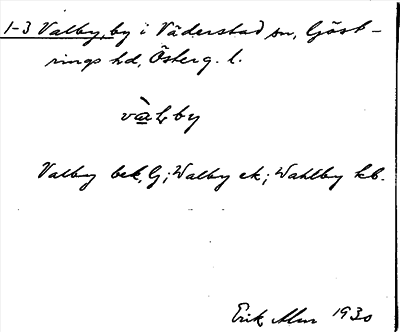 1-3 Valby, by i Väderstad sn, Göst-
rings hd, Österg. l.
Valby bek, G; Walby ek; Wahlby kb.
Erik Alm 1930